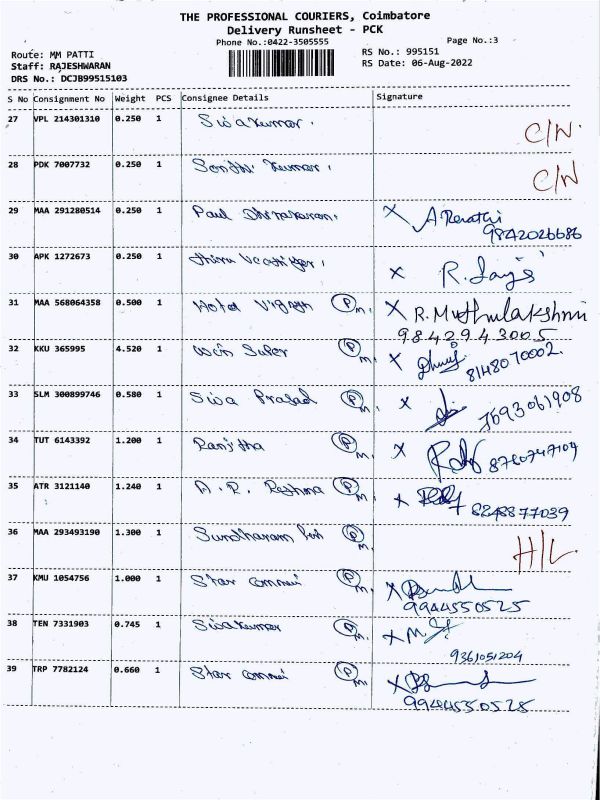 THE PROFESSIONAL COURIERS, Coimbatore
Delivery Runsheet - PCK
Phone No.:0422-3505555
Page No.:3
Route: MM PATTI
RS No.: 995151
Staff: RAJESHWARAN
RS Date: 06-Aug-2022
DRS No.: DCJB99515103
S No Consignment No Weight PCS Consignee Details Signature
27 VPL 214301310 0.250 1 Sivakumar. C/N.
28 PDK 7007732 0.250 1 Kumar. C/N
29 MAA 291280514 0.250 1 Paul X
9842026686
30 APK 1272673 0.250 1 X R.
31 MAA 568064358 0.500 1 Hotel P M. X R. Muthulakshmi
9842943005
32 KKU 365995 4.520 1 P M. X
8148070002.
33 SLM 300899746 0.580 1 Siva Prasad P M. X
7693061908
34 TUT 6143392 1.200 1 Ranjitha P M. X
8760747109
35 ATR 3121140 1.240 1 A. R. Reshma P M. X
8248877039
36 MAA 293493190 1.300 1 Sundharam P M. H/L
37 KMU 1054756 1.000 1 Star P M. X
9944550525
38 TEN 7331903 0.745 1 Sivakumar P M. X
9361051204
39 TRP 7782124 0.660 1 Star P M. X
9944550525